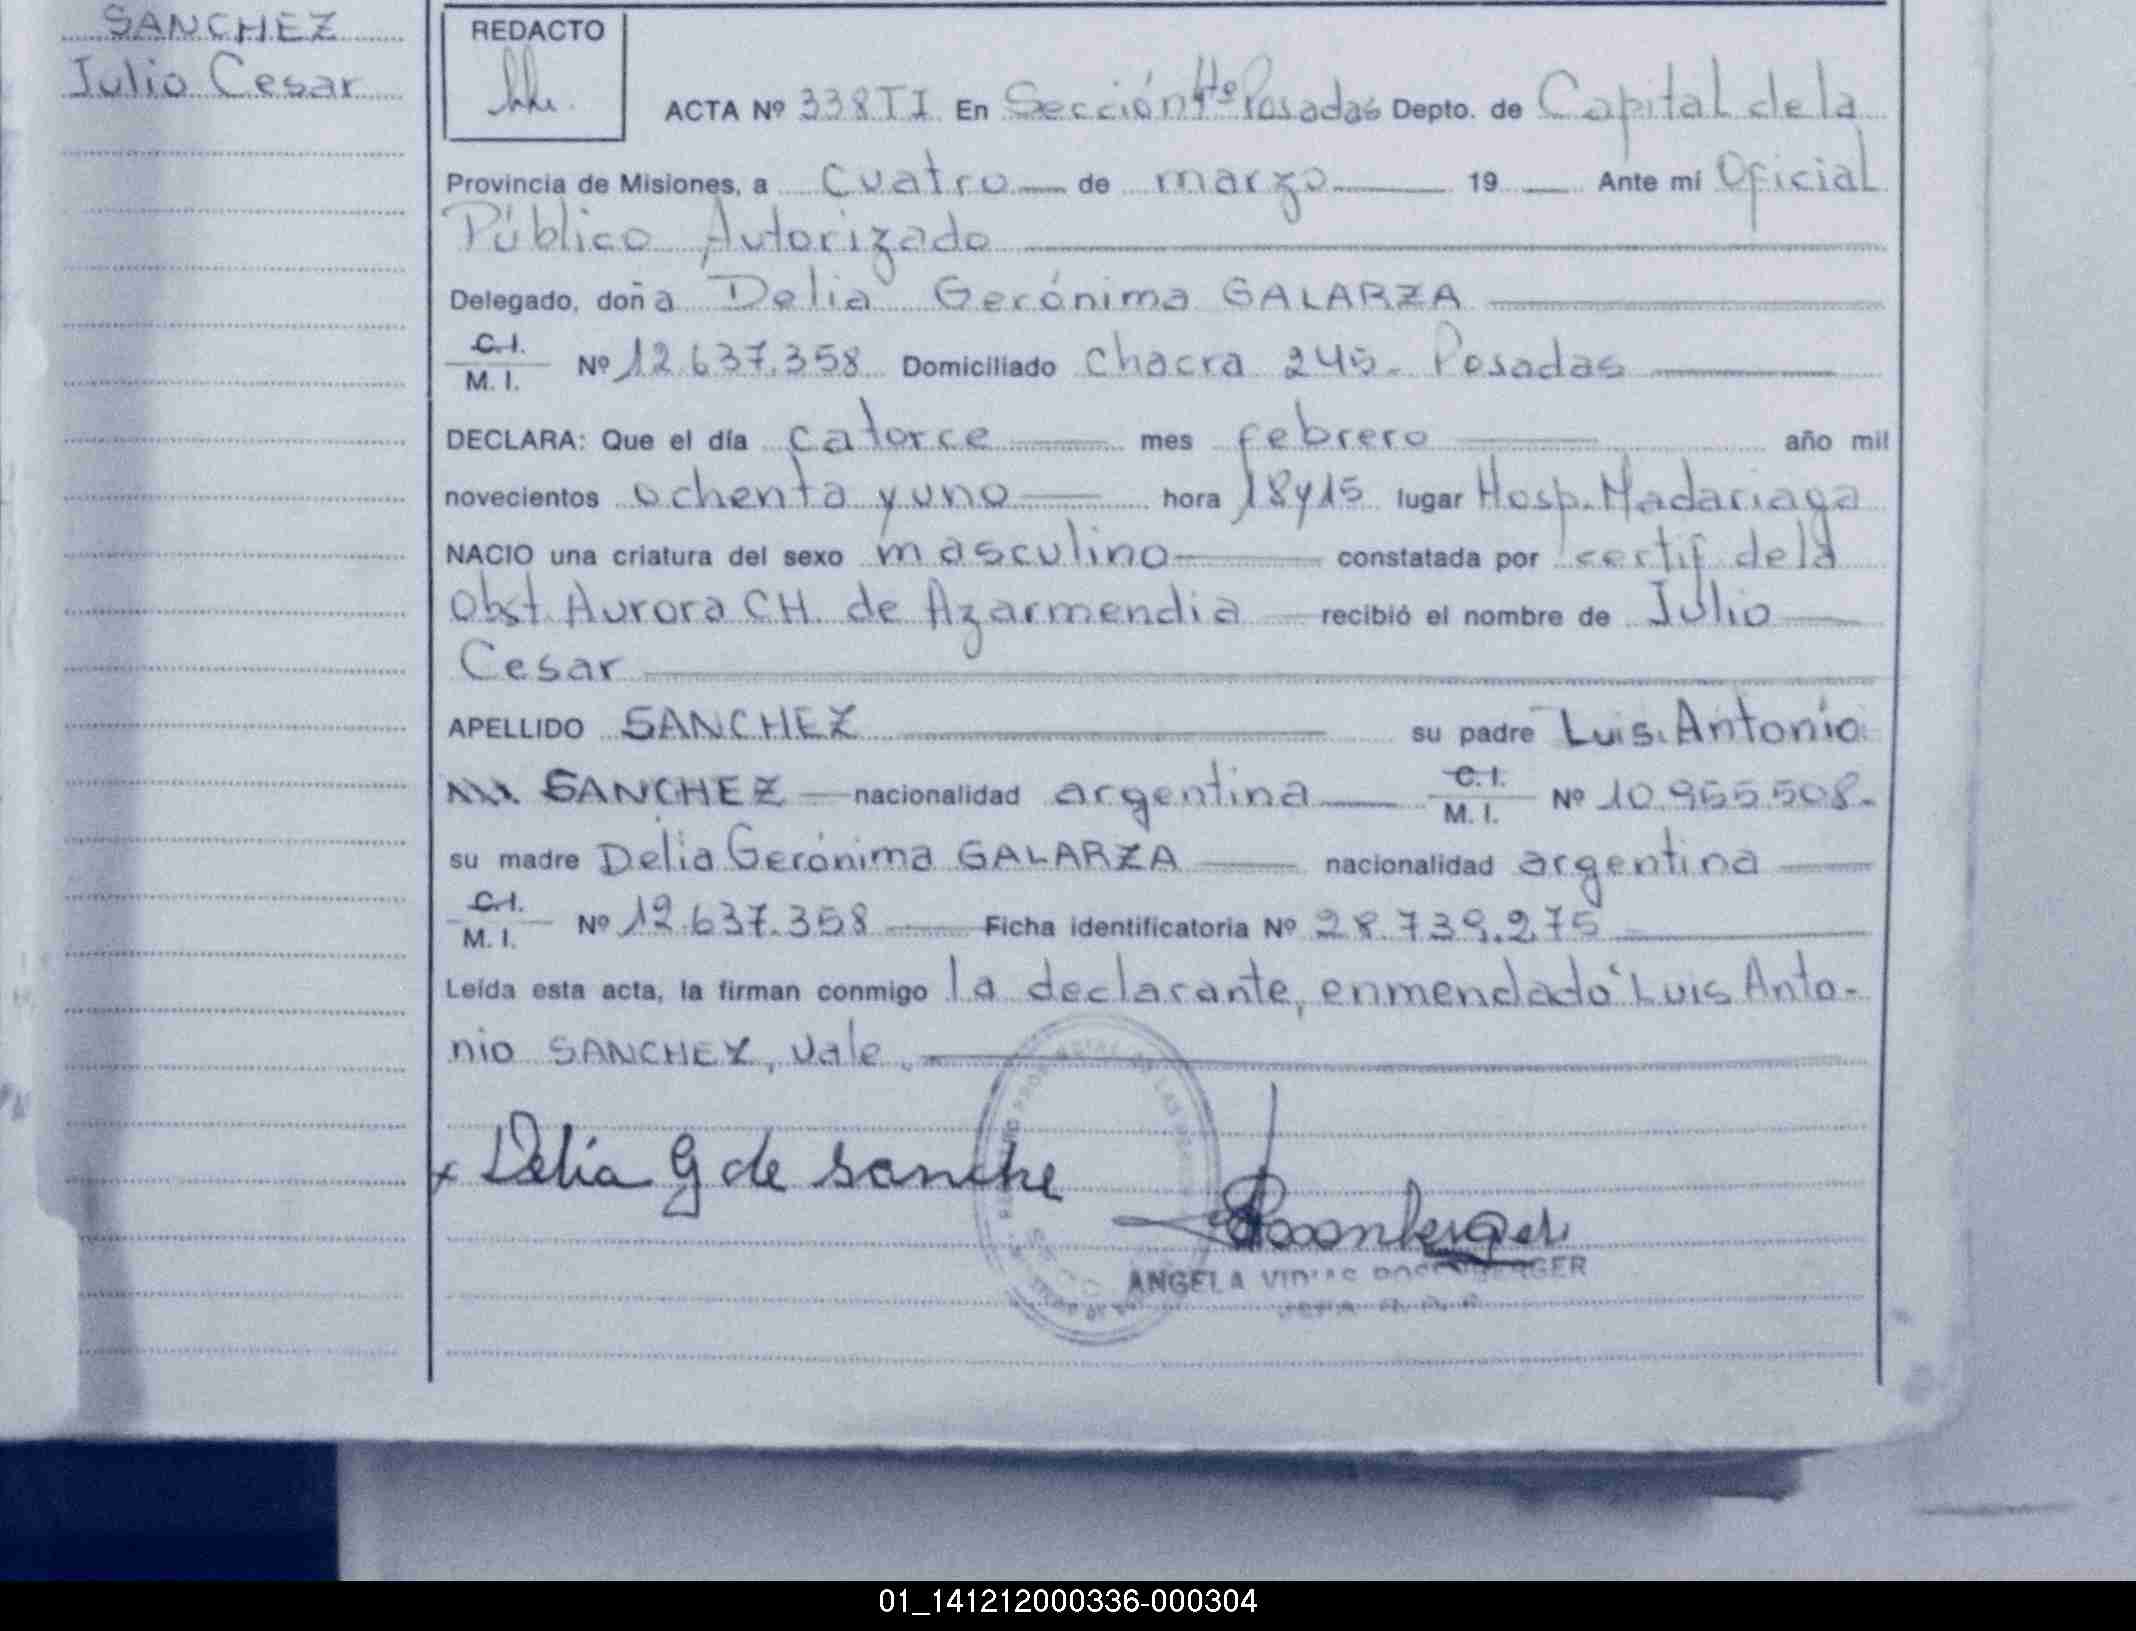 SANCHEZ
Julio Cesar
REDACTO
ACTA Nº 338 T I En Sección 4tº Posadas Depto. de Capital de la
Provincia de Misiones, a cuatro de marzo 19 Ante mí Oficial
Público Autorizado
Delegado, doña Delia Gerónima GALARZA
C.I. M. I. Nº 12.637.358 Domiciliado chacra 245- Posadas
DECLARA: Que el día catorce mes febrero año mil
novecientos ochenta y uno hora 18y15 lugar Hosp. Madariaga
NACIO una criatura del sexo masculino constatada por certif de la
Obst. Aurora CH. de Azarmendia recibió el nombre de Julio
Cesar
APELLIDO SANCHEZ su padre Luis Antonio
SANCHEZ nacionalidad argentina C. I. M. I. Nº 10.955.508.-
su madre Delia Gerónima GALARZA nacionalidad argentina
C.I. M. I. Nº 12.637.358 Ficha identificatoria Nº 28.739.275
Leída esta acta, la firman conmigo la declarante, enmendado "Luis Anto-
nio SANCHEZ, vale.
x Delia G de sanche
ANGELA
01_141212000336-000304